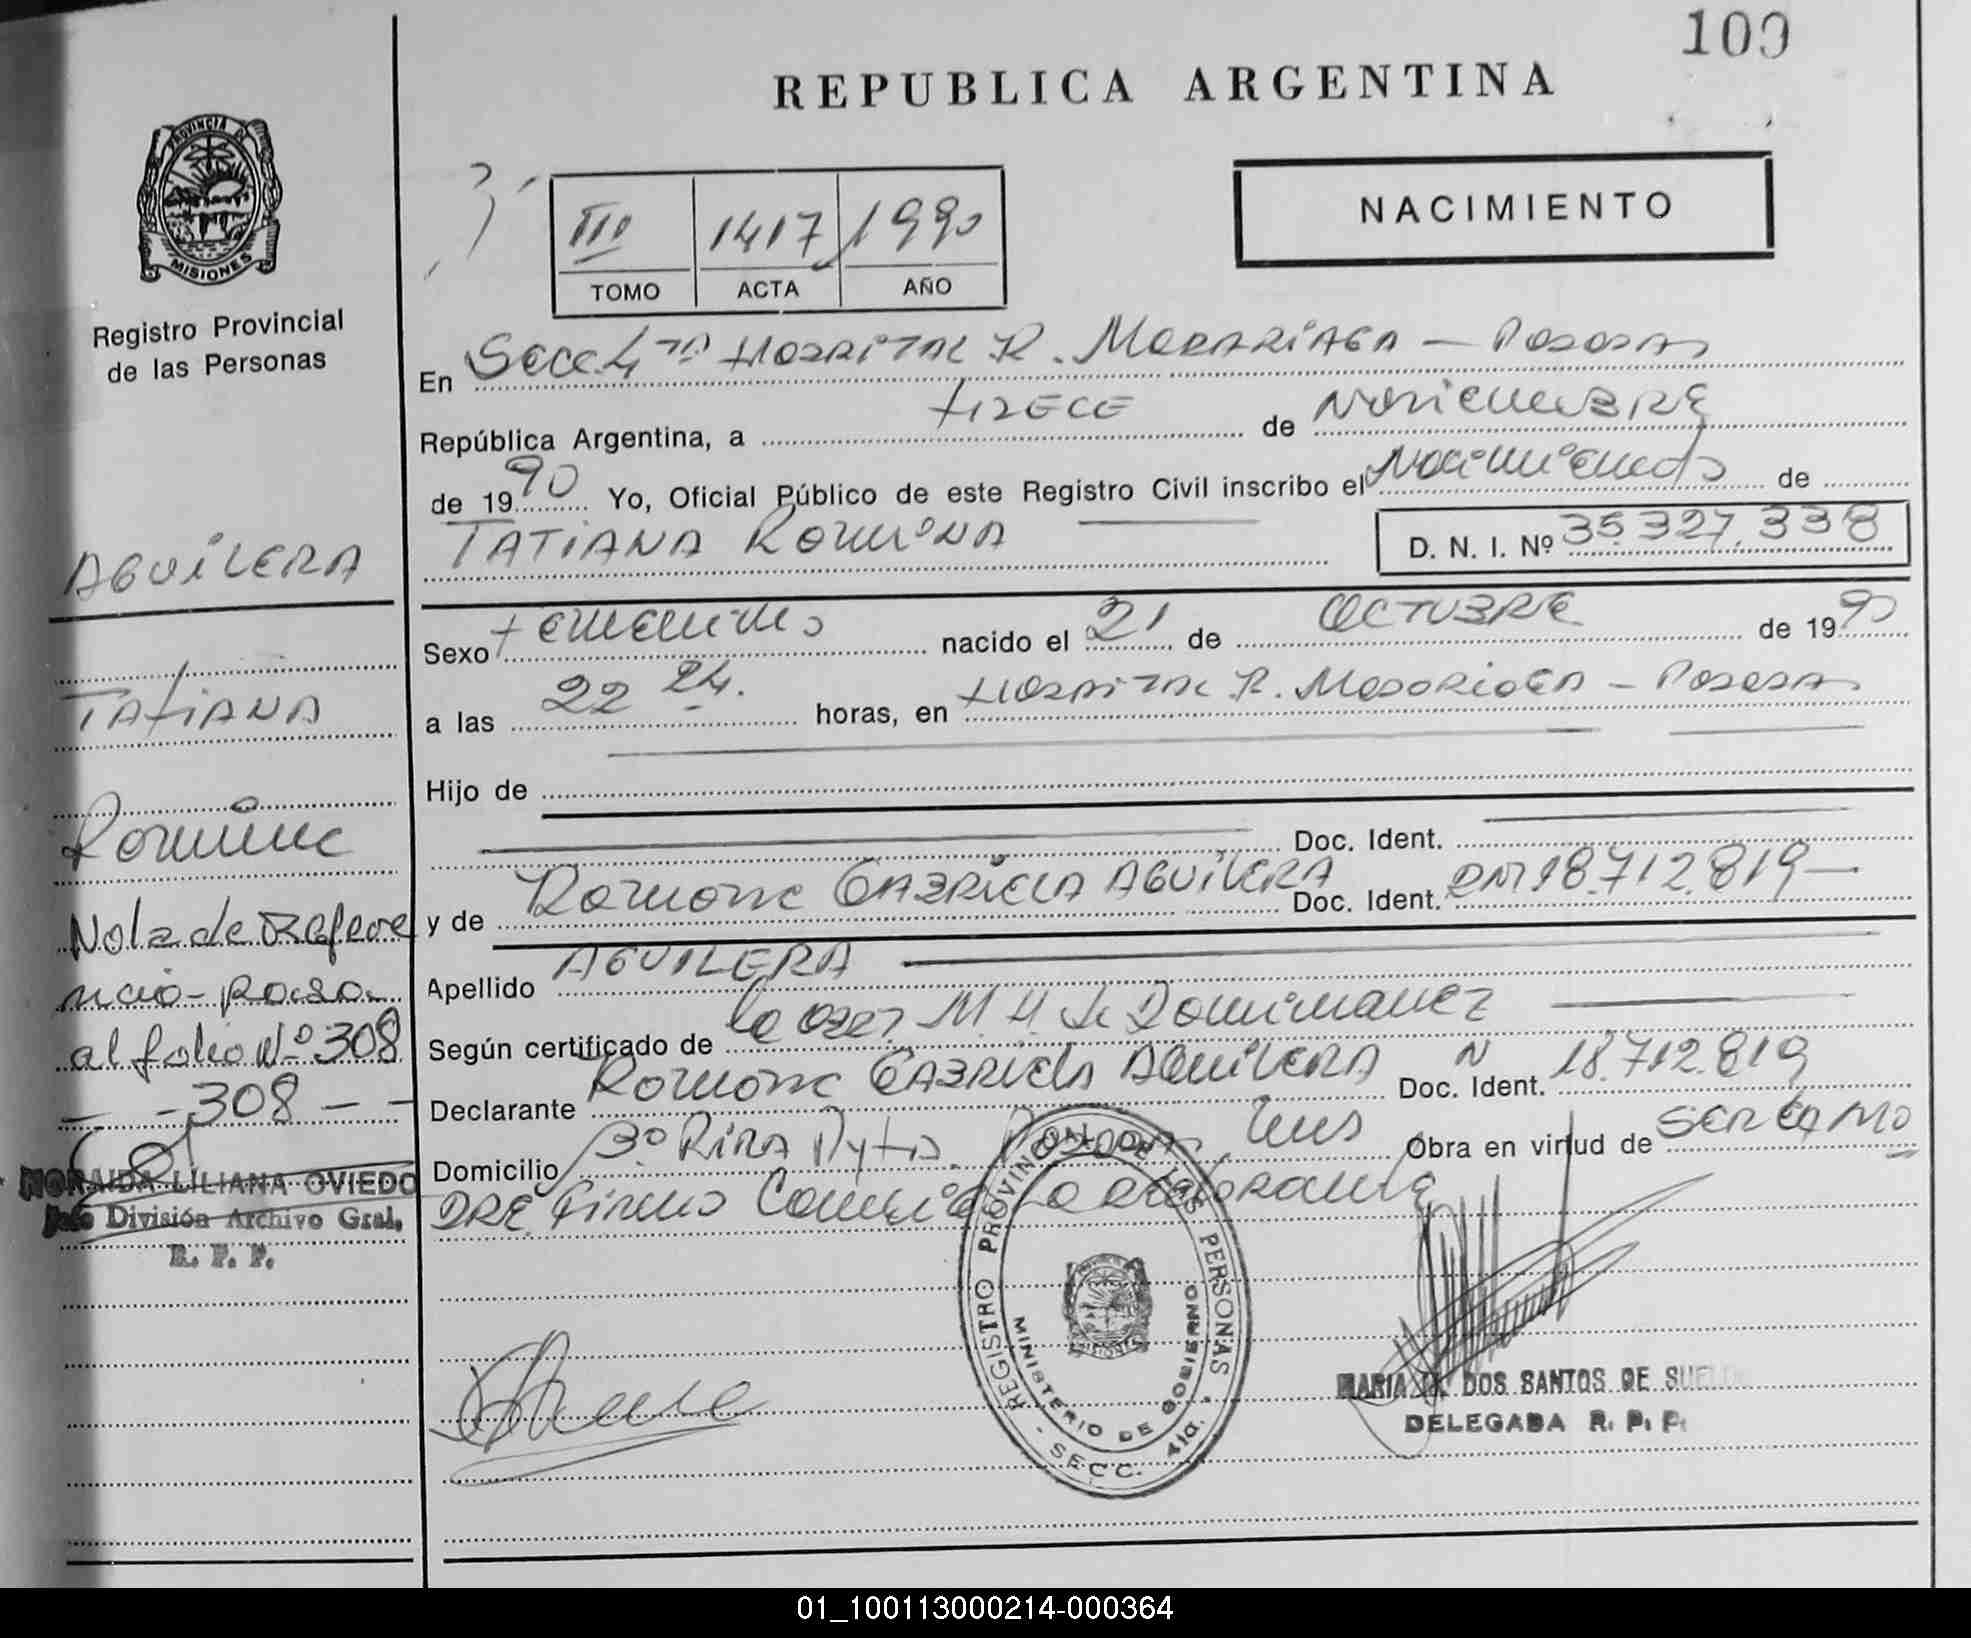 100
REPUBLICA ARGENTINA
PROVINCIA DE
MISIONES
Registro Provincial
de las Personas
III 1417 1990
TOMO ACTA AÑO
NACIMIENTO
En Secc. 4ta HOSPITAL R. MADARIAGA - POSADAS
República Argentina, a TRECE de NOVIEMBRE
de 1990 Yo, Oficial Público de este Registro Civil inscribo el Nacimiento de
TATIANA ROMINA D. N. I. Nº 35.327.338
Sexo Femenino nacido el 21 de OCTUBRE de 1990
a las 22 24. horas, en HOSPITAL R. MADARIAGA - POSADAS
Hijo de
Doc. Ident.
y de Ramona GABRIELA AGUILERA Doc. Ident. DNI 18.712.819
Apellido AGUILERA
Según certificado de la M. H. de
Declarante Ramona GABRIELA AGUILERA Doc. Ident. N 18.712.819
Domicilio Obra en virtud de
Firma
AGUILERA
TATIANA
Romina
Nota de Refere
ncia - pasa
al folio Nº 308
- - 308 - -
NORAIDA LILIANA OVIEDO
Jefe División Archivo Gral.
R. P. P.
REGISTRO PROVINCIAL DE LAS PERSONAS
MINISTERIO DE GOBIERNO
- SECC. 4ta. -
MISIONES
MARIA DOS SANTOS DE
DELEGADA R. P. P.
01_100113000214-000364